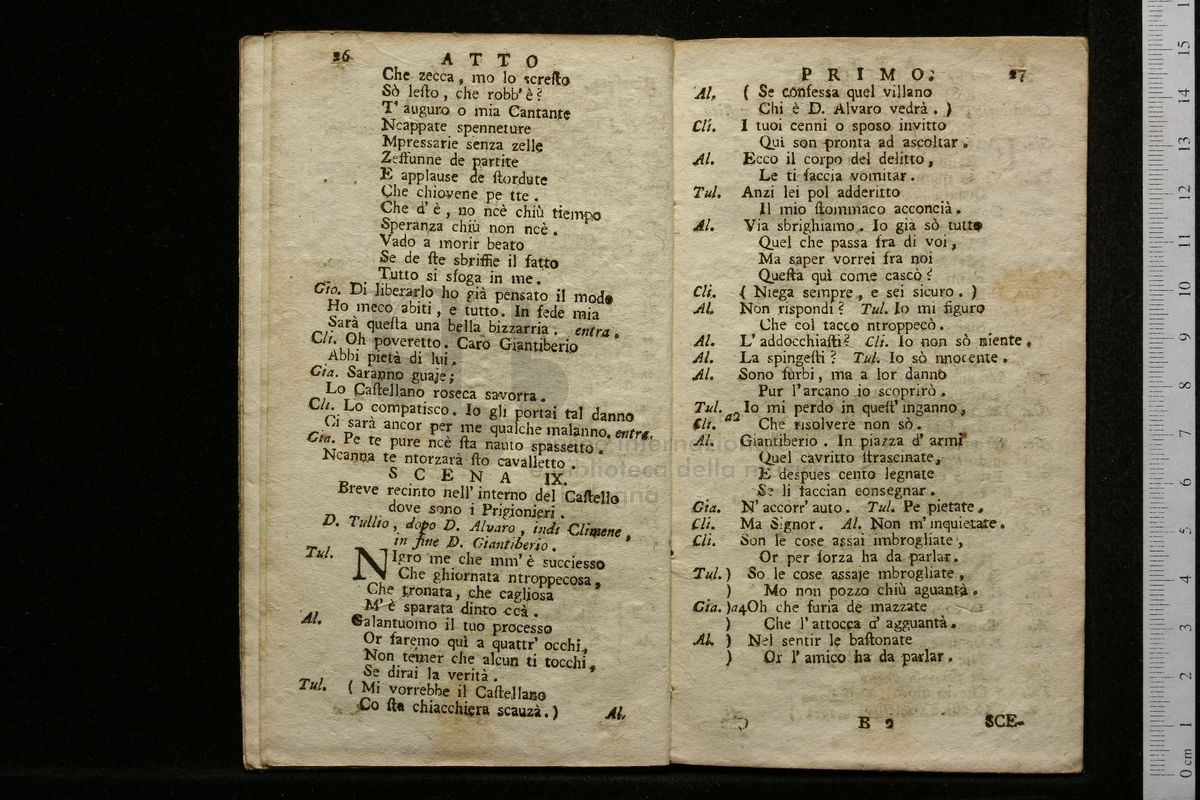 26 ATTO
Che zecca, mo lo scresto
Sò lesto, che robb' è?
T' auguro o mia Cantante
Ncappate spenneture
Mpressarie senza zelle
Zeffunne de partite
E applause de stordute
Che chiovene pe tte.
Che d' è, no ncè chiù tiempo
Speranza chiù non ncè.
Vado a morir beato
Se de ste sbriffie il fatto
Tutto si sfoga in me.
Gio. Di liberarlo ho già pensato il modo
Ho meco abiti, e tutto. In fede mia
Sarà questa una bella bizzarria. entra.
Cli. Oh poveretto. Caro Giantiberio
Abbi pietà di lui.
Gia. Saranno guaje;
Lo Castellano roseca savorra.
Cli. Lo compatisco. Io gli portai tal danno
Ci sarà ancor per me qualche malanno. entra.
Gia. Pe te pure ncè sta nauto spassetto.
Ncanna te ntorzarà sto cavalletto.
SCENA IX.
Breve recinto nell' interno del Castello
dove sono i Prigionieri.
D. Tullio, dopo D. Alvaro, indi Climene,
in fine D. Giantiberio.
Tul. NIgro me che mm' è succiesso
Che ghiornata ntroppecosa,
Che tronata, che cagliosa
M' è sparata dinto ccà.
Al. Galantuomo il tuo processo
Or faremo quì a quattr' occhi,
Non temer che alcun ti tocchi,
Se dirai la verità.
Tul. ( Mi vorrebbe il Castellano
Co sta chiacchiera scauzà. )
Al.
PRIMO. 27
Al. ( Se confessa quel villano
Chi è D. Alvaro vedrà. )
Cli. I tuoi cenni o sposo invitto
Qui son pronta ad ascoltar.
Al. Ecco il corpo del delitto,
Le ti faccia vomitar.
Tul. Anzi lei pol adderitto
Il mio stommaco acconcià.
Al. Via sbrighiamo. Io già sò tutto
Quel che passa fra di voi,
Ma saper vorrei fra noi
Questa quì come cascò?
Cli. ( Niega sempre, e sei sicuro. )
Al. Non rispondi? Tul. Io mi figuro
Che col tacco ntroppecò.
Al. L' addocchiasti? Cli. Io non sò niente.
Al. La spingesti? Tul. Io sò nnocente.
Al. Sono furbi, ma a lor danno
Pur l' arcano io scoprirò.
Tul. a2 Io mi perdo in quest' inganno,
Cli. Che risolvere non sò.
Al. Giantiberio. In piazza d' armi
Quel cavritto strascinate,
E despues cento legnate
Se li faccian consegnar.
Gia. N' accorr' auto. Tul. Pe pietate.
Cli. Ma Signor. Al. Non m' inquietate.
Cli. Son le cose assai imbrogliate,
Or per forza ha da parlar.
Tul. ) So le cose assaje mbrogliate,
) Mo non pozzo chiù aguantà.
Gia. )a4 Oh che furia de mazzate
) Che l' attocca d' agguantà.
Al. ) Nel sentir le bastonate
) Or l' amico ha da parlar.
B 2 SCE-